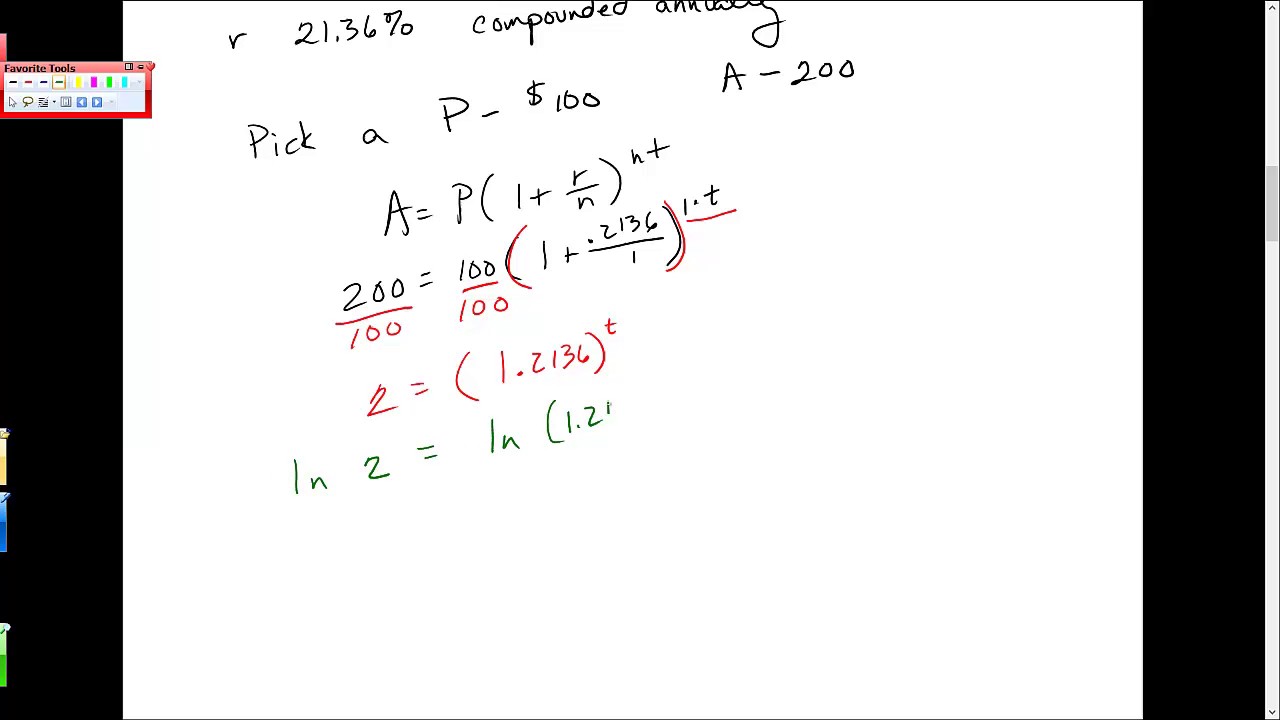 r 21.36% compounded annually
Favorite Tools
Pick a P - $100 A - 200
A = P( 1 + r/n )^nt
200/100 = 100/100 ( 1 + .2136/1 )^1·t
2 = ( 1.2136 )^t
ln 2 = ln (1.21